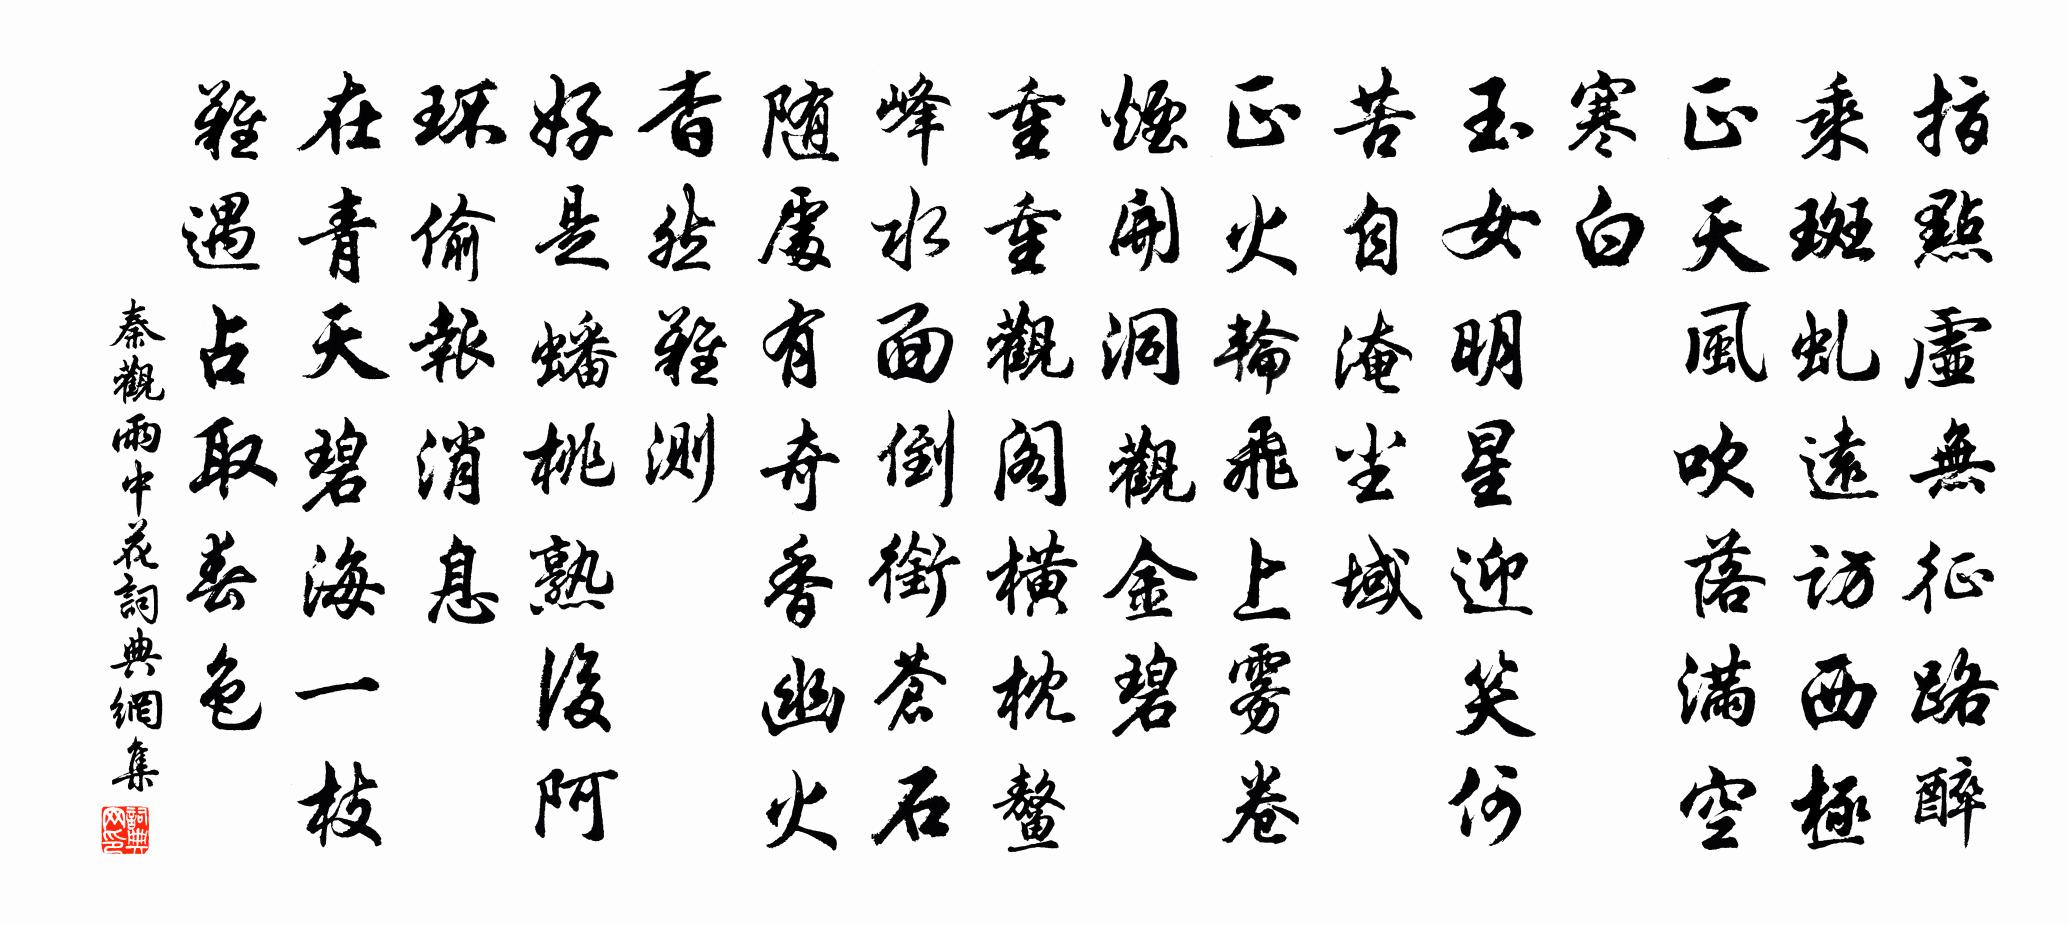 指點虛無征路醉
乘斑虬遠訪西極
正天風吹落滿空
寒白
玉女明星迎笑何
苦自淹尘域
正火輪飛上雾卷
煙開洞觀金碧
重重觀阁横枕鳌
峰水面倒銜蒼石
随處有奇香幽火
杳然難測
好是蟠桃熟後阿
环偷報消息
在青天碧海一枝
難遇占取春色
秦觀雨中花詞典網集
詞典网印